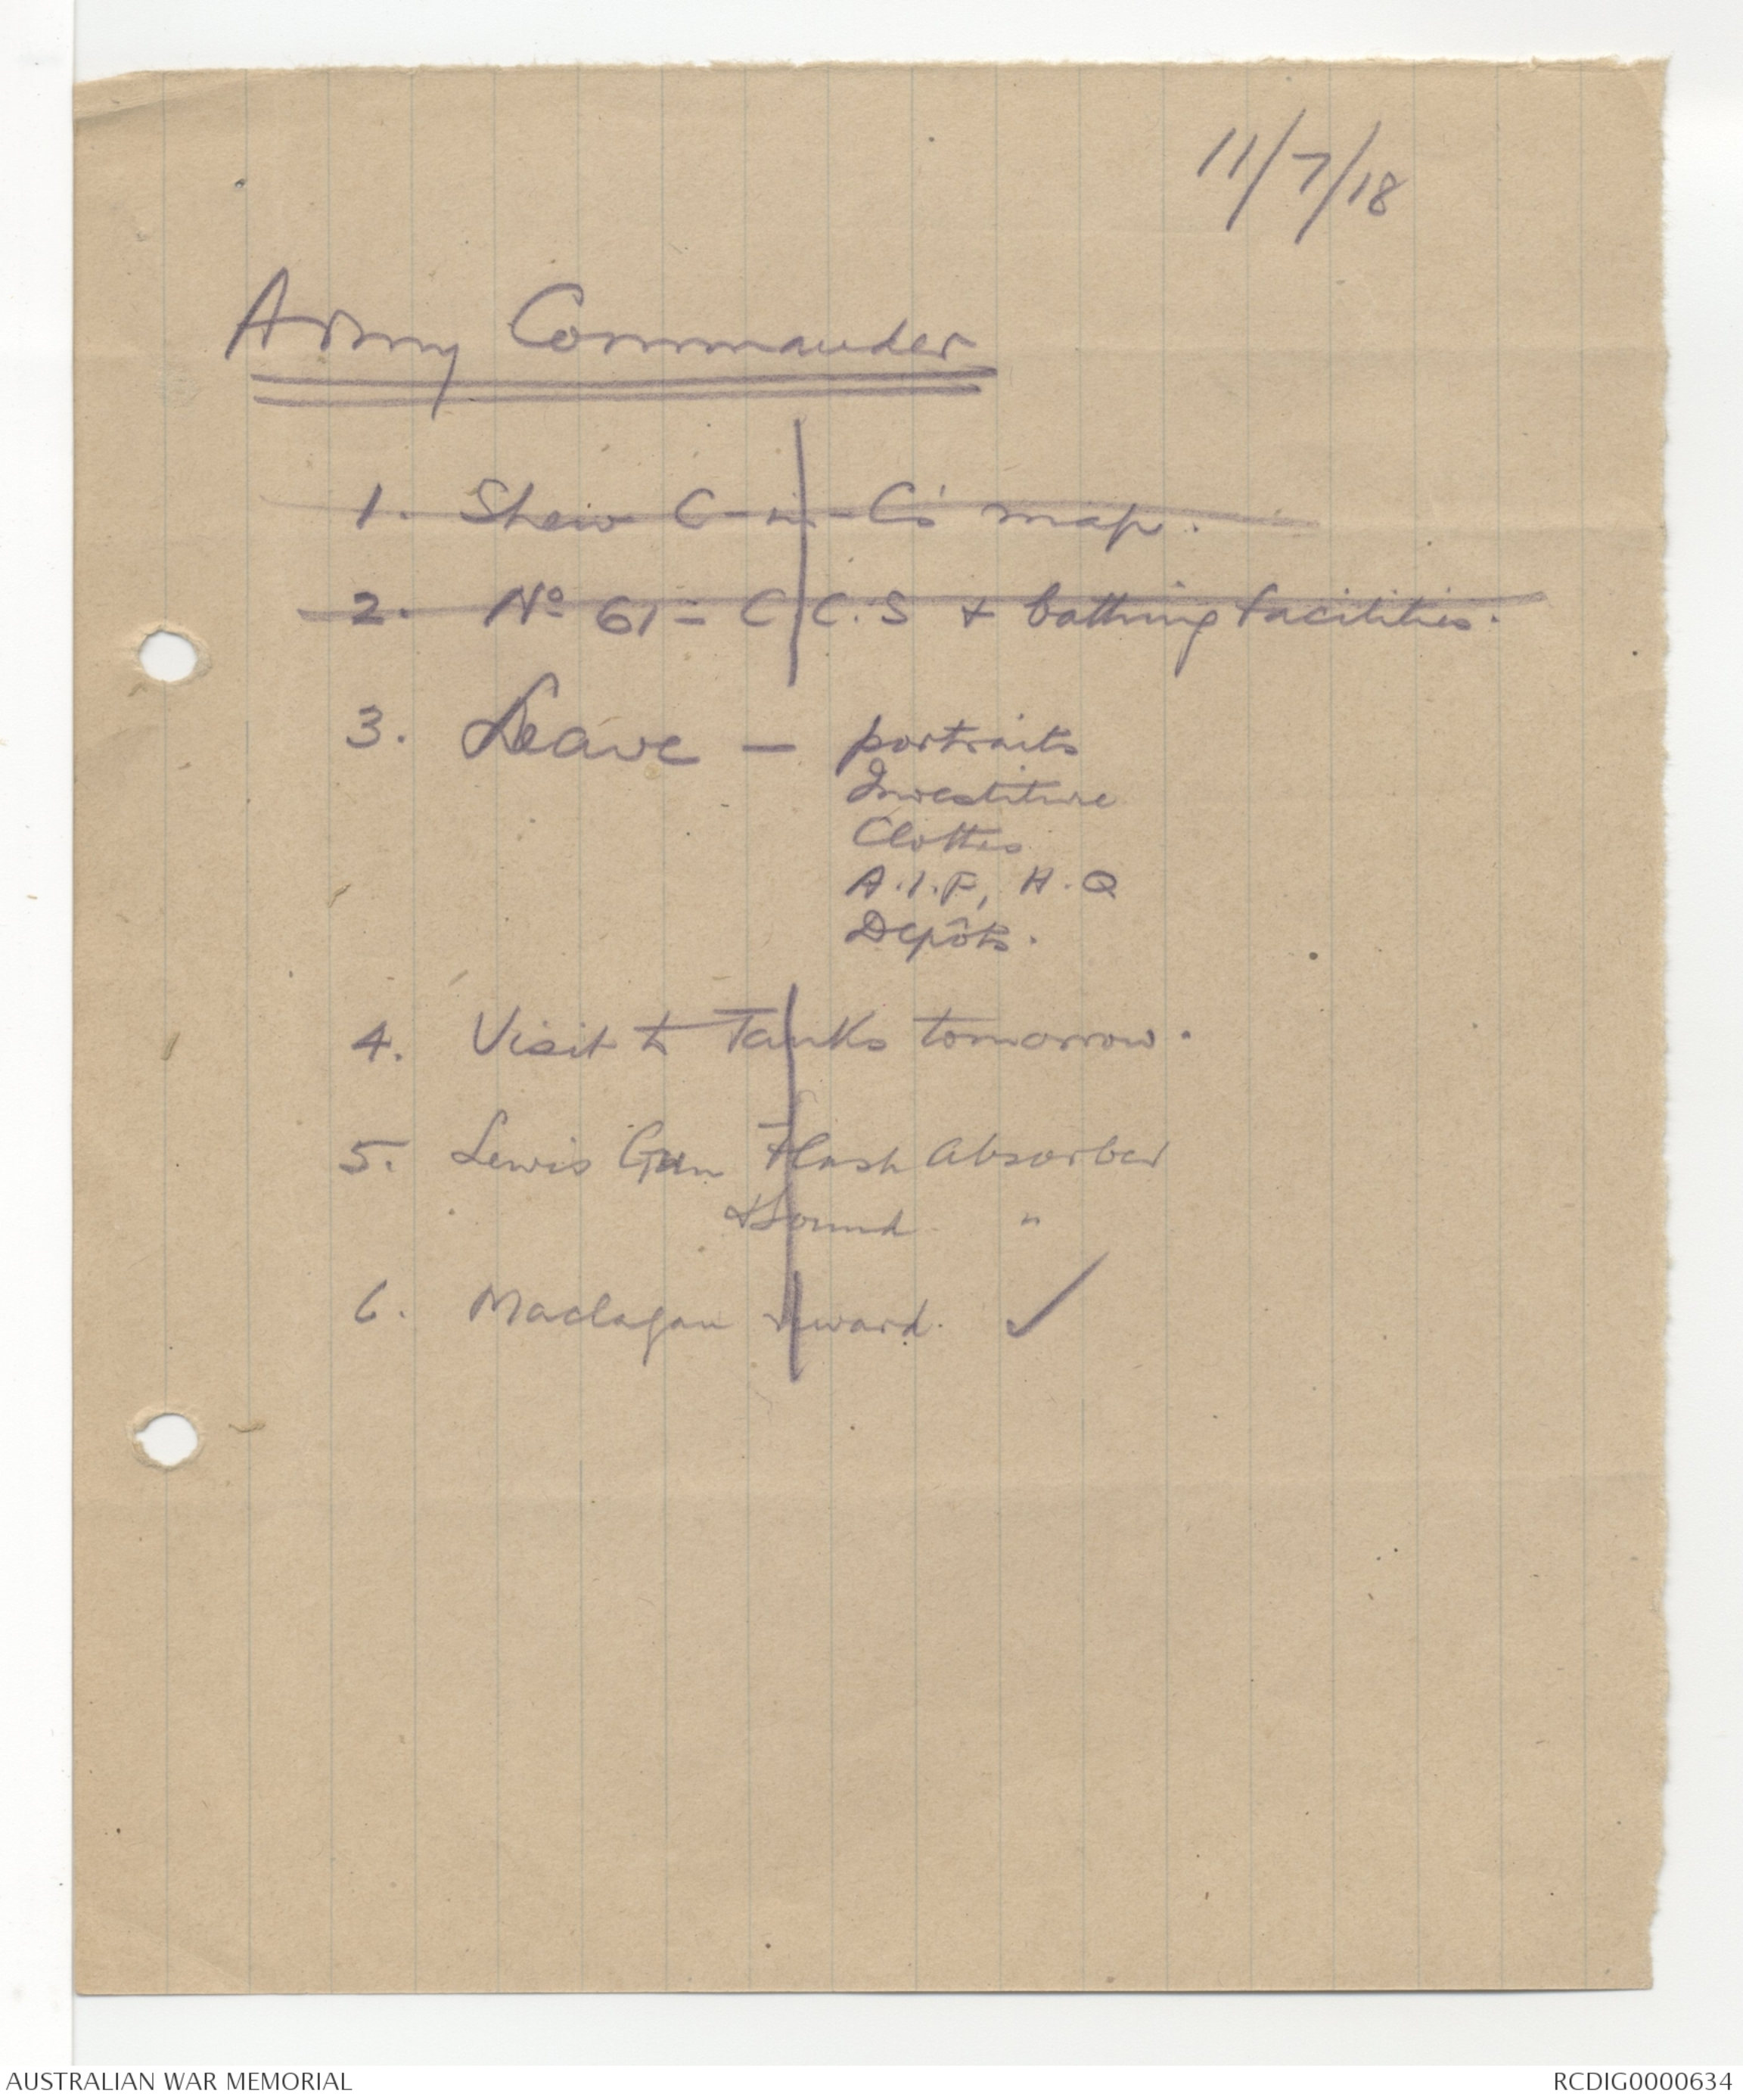 11/7/18
Army Commander
1. Shew C-in-C's map.
2. No 61 = C.C.S + bathing facilities.
3. Leave — portraits
Investiture
Clothes
A.I.F, H.Q
Depôts.
4. Visit to Tanks tomorrow.
5. Lewis Gun Flash absorber
& Sound "
6. Maclagan reward. ✓
AUSTRALIAN WAR MEMORIAL
RCDIG0000634